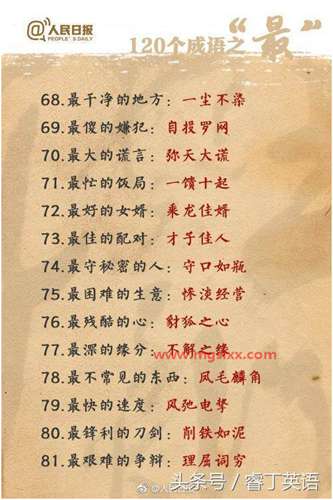 @人民日报
PEOPLE'S DAILY
120个成语之“最”
68.最干净的地方：一尘不染
69.最傻的嫌犯：自投罗网
70.最大的谎言：弥天大谎
71.最忙的饭局：一馈十起
72.最好的女婿：乘龙佳婿
73.最佳的配对：才子佳人
74.最守秘密的人：守口如瓶
75.最困难的生意：惨淡经营
76.最残酷的心：豺狐之心
77.最深的缘分：不解之缘
78.最不常见的东西：凤毛麟角
79.最快的速度：风驰电掣
80.最锋利的刀剑：削铁如泥
81.最艰难的争辩：理屈词穷
头条号／睿丁英语